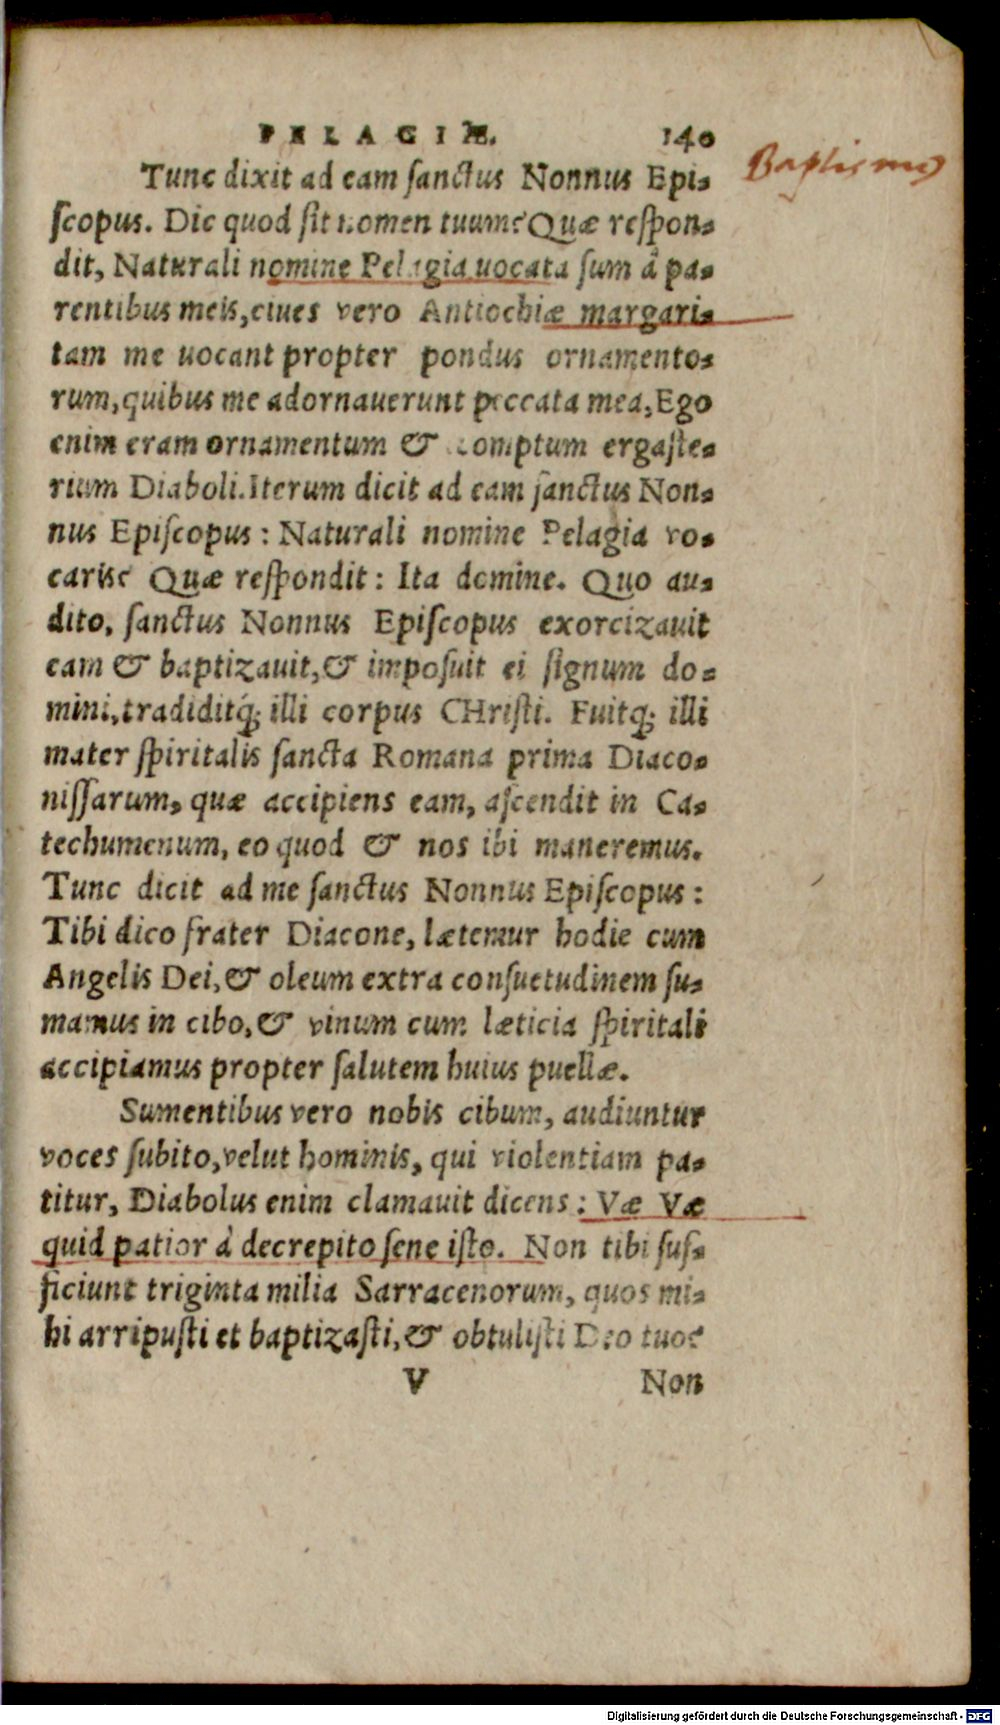 PELAGIÆ. 140
Baptismus
Tunc dixit ad eam ſanctus Nonnus Epi-
ſcopus. Dic quod ſit nomen tuum? Quæ reſpon-
dit, Naturali nomine Pelagia uocata ſum â pa-
rentibus meis, ciues vero Antiochiæ margari-
tam me uocant propter pondus ornamento-
rum, quibus me adornauerunt peccata mea, Ego
enim eram ornamentum & comptum ergaſte-
rium Diaboli. Iterum dicit ad eam ſanctus Non-
nus Epiſcopus: Naturali nomine Pelagia vo-
caris? Quæ reſpondit: Ita domine. Quo au-
dito, ſanctus Nonnus Epiſcopus exorcizauit
eam & baptizauit, & impoſuit ei ſignum do-
mini, tradiditq́; illi corpus CHriſti. Fuitq; illi
mater ſpiritalis ſancta Romana prima Diaco-
niſſarum, quæ accipiens eam, aſcendit in Ca-
techumenum, eo quod & nos ibi maneremus.
Tunc dicit ad me ſanctus Nonnus Epiſcopus:
Tibi dico frater Diacone, lætemur hodie cum
Angelis Dei, & oleum extra conſuetudinem ſu-
mamus in cibo, & vinum cum læticia ſpiritali
accipiamus propter ſalutem huius puellæ.
Sumentibus vero nobis cibum, audiuntur
voces ſubito, velut hominis, qui violentiam pa-
titur, Diabolus enim clamauit dicens: Væ Væ
quid patior à decrepito ſene iſto. Non tibi ſuf-
ficiunt triginta milia Sarracenorum, quos mi-
hi arripuſti et baptizaſti, & obtuliſti Deo tuo?
V Non
Digitalisierung gefördert durch die Deutsche Forschungsgemeinschaft - DFG